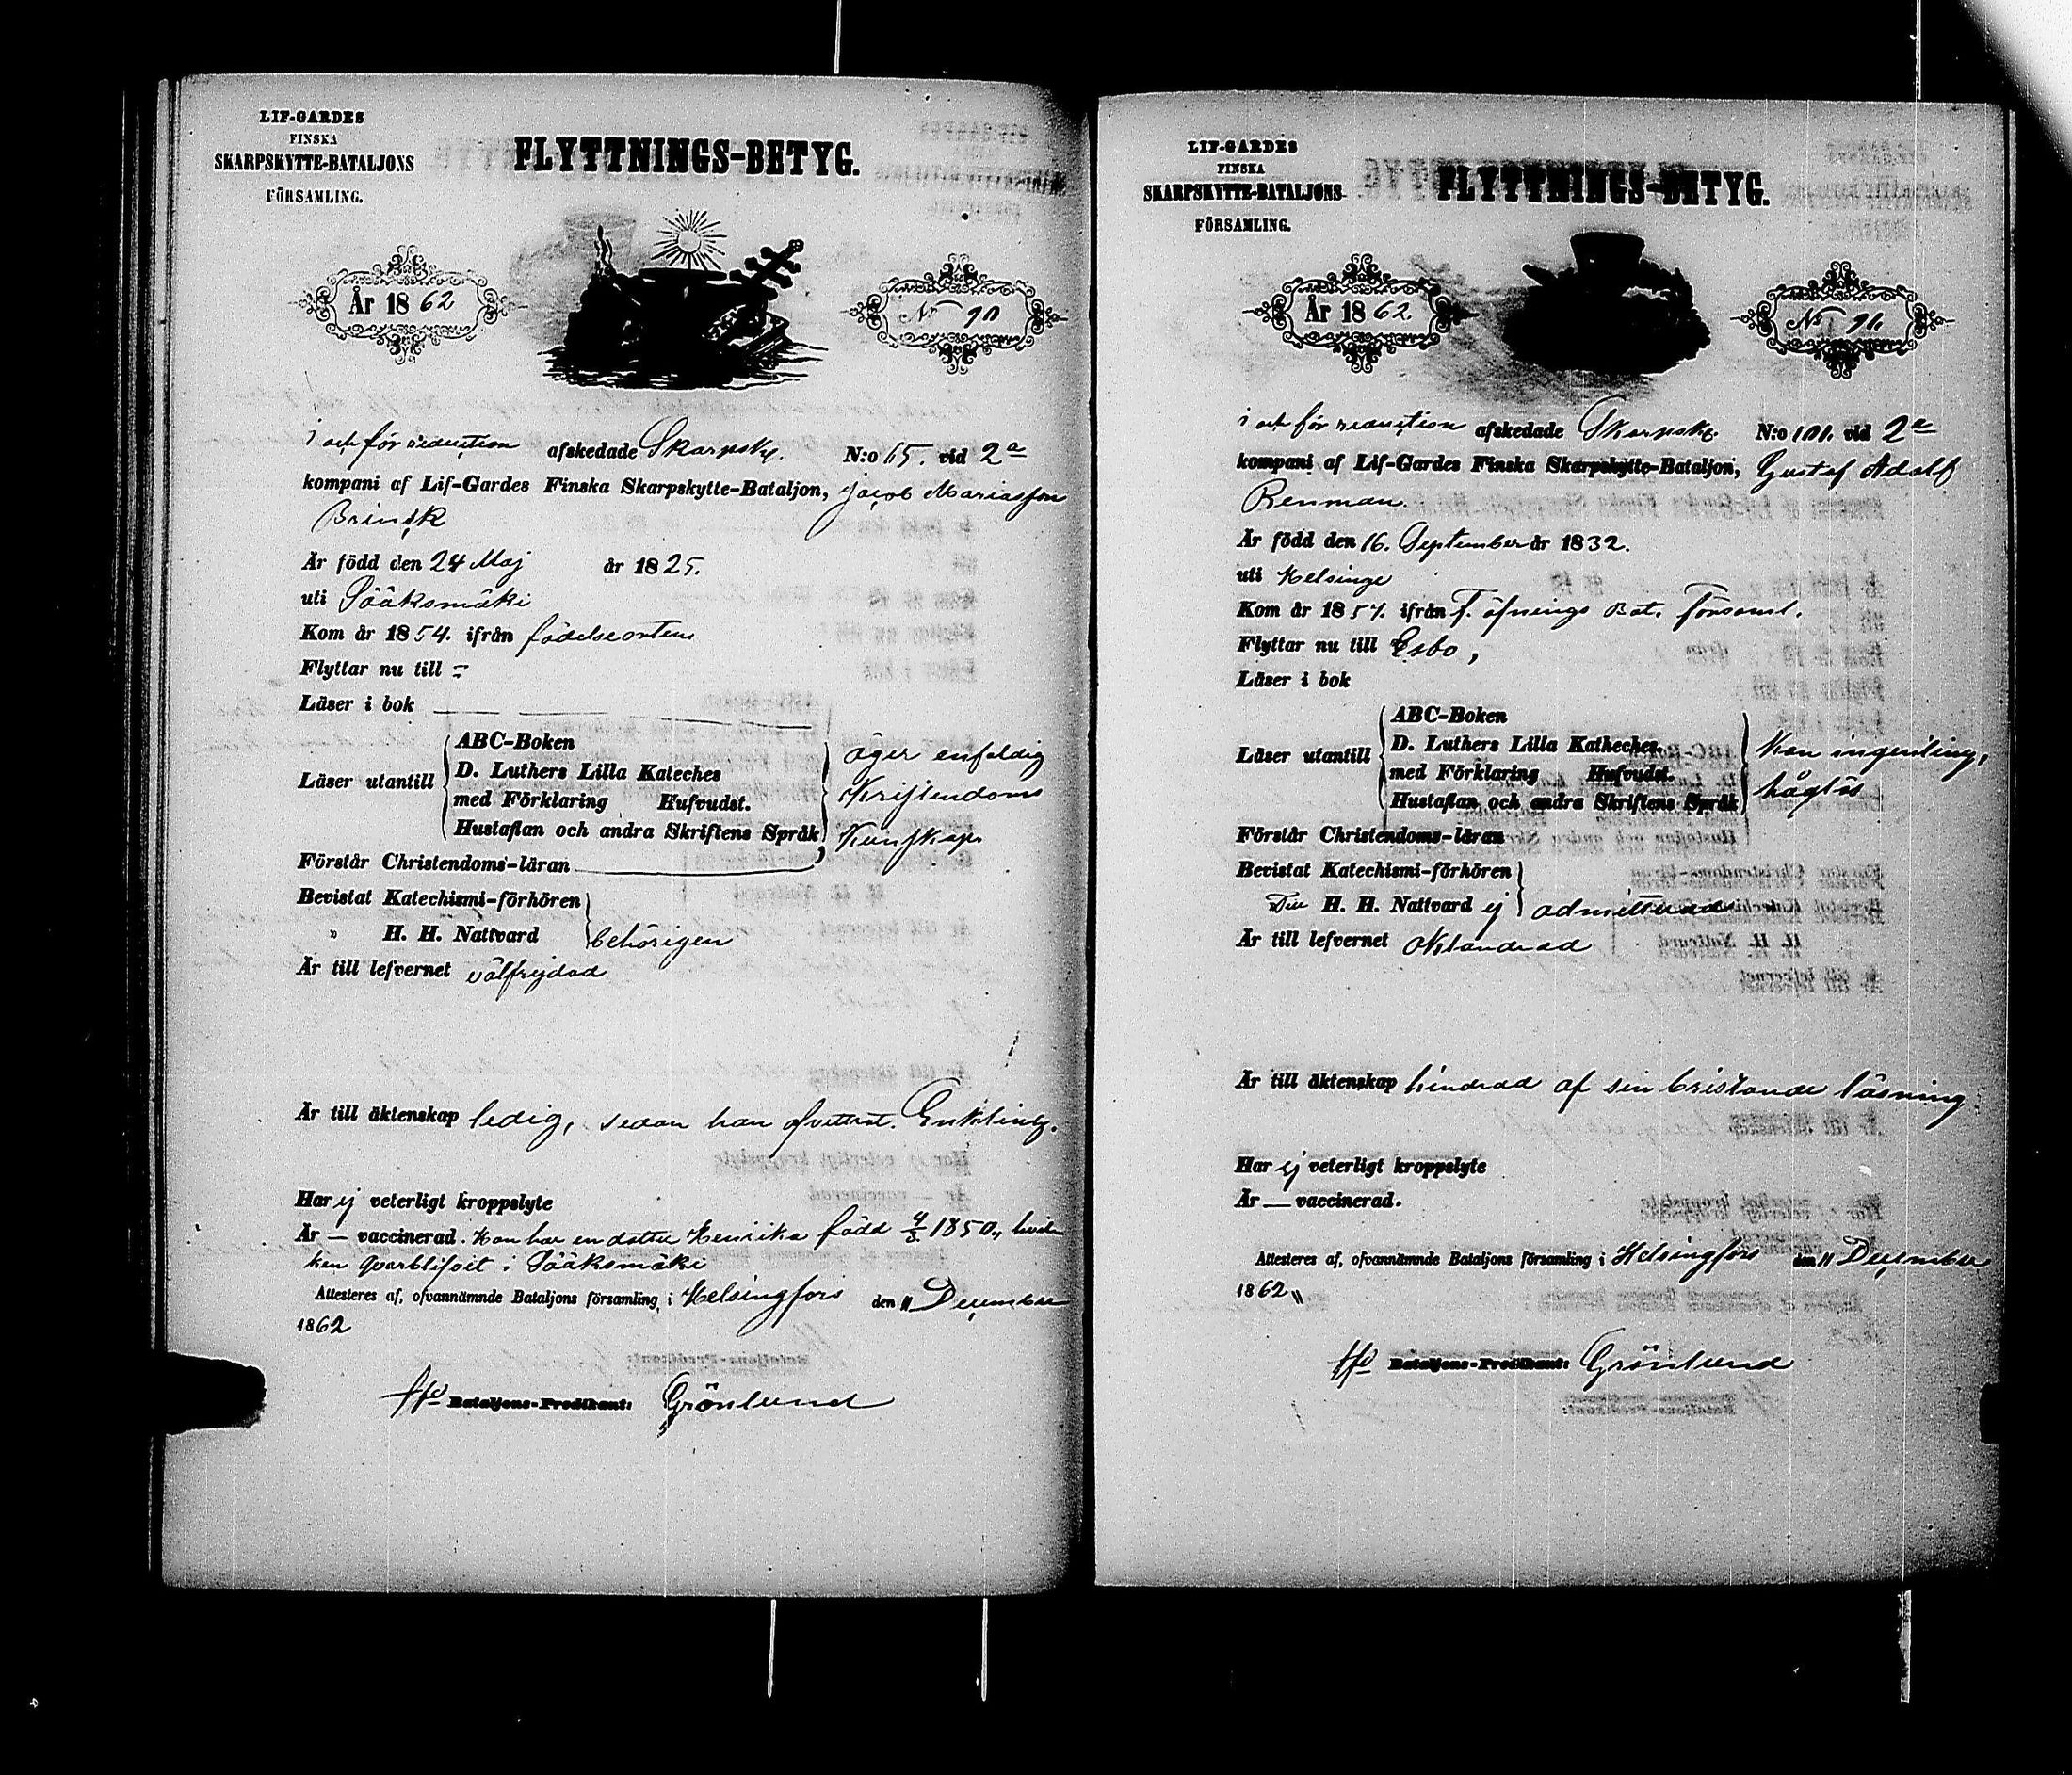 LIF-GARDES
FINSKA
SKARPSKYTTE-BATALJONS
FÖRSAMLING.
FLYTTNINGS-BETYG.
År 1862
No 90
i och för reduction afskedade Skarpsky. N:o 65. vid 2a
kompani af Lif-Gardes Finska Skarpskytte-Bataljon, Jacob Mariasson
Brinck
Är född den 24 Maj år 1825.
uti Sääksmäki
Kom år 1854. ifrån födelseorten
Flyttar nu till -
Läser i bok
ABC-Boken
D. Luthers Lilla Kateches
Läser utantill
med Förklaring Hufvudst.
Hustaflan och andra Skriftens Språk
äger enfaldig
Kristendoms
Kunskap
Förstår Christendoms-läran
Bevistat Katechismi-förhören
" H. H. Nattvard behörigen
Är till lefvernet välfrejdad
Är till äktenskap ledig, sedan han Enkling.
Har ej veterligt kroppslyte
Är — vaccinerad. Han har en dotter Henrika född 1850, hvil
ken qvarblifvit i Sääksmäki
Attesteres af, ofvannämnde Bataljons församling i Helsingfors den 11 December
1862
Bataljons-Predikant: Grönlund
LIF-GARDES
FINSKA
SKARPSKYTTE-BATALJONS
FÖRSAMLING.
FLYTTNINGS-BETYG.
År 1862
No 91.
i och för reduction afskedade Skarpsky. N:o 101. vid 2a
kompani af Lif-Gardes Finska Skarpskytte-Bataljon, Gustaf Adolf
Renman.
Är född den 16. September år 1832.
uti Helsinge
Kom år 1857. ifrån F. öfnings Bat. Församl.
Flyttar nu till Esbo,
Läser i bok
ABC-Boken
D. Luthers Lilla Katheches.
Läser utantill
med Förklaring Hufvudst.
Hustaflan och andra Skriftens Språk
Kan ingenting,
håglös
Förstår Christendoms-läran
Bevistat Katechismi-förhören
Till H. H. Nattvard ej admitterad
Är till lefvernet oklandrad
Är till äktenskap hindrad af sin bristande läsning
Har ej veterligt kroppslyte
Är — vaccinerad.
Attesteres af, ofvannämnde Bataljons församling i Helsingfors den 11 December
1862
Bataljons-Predikant: Grönlund